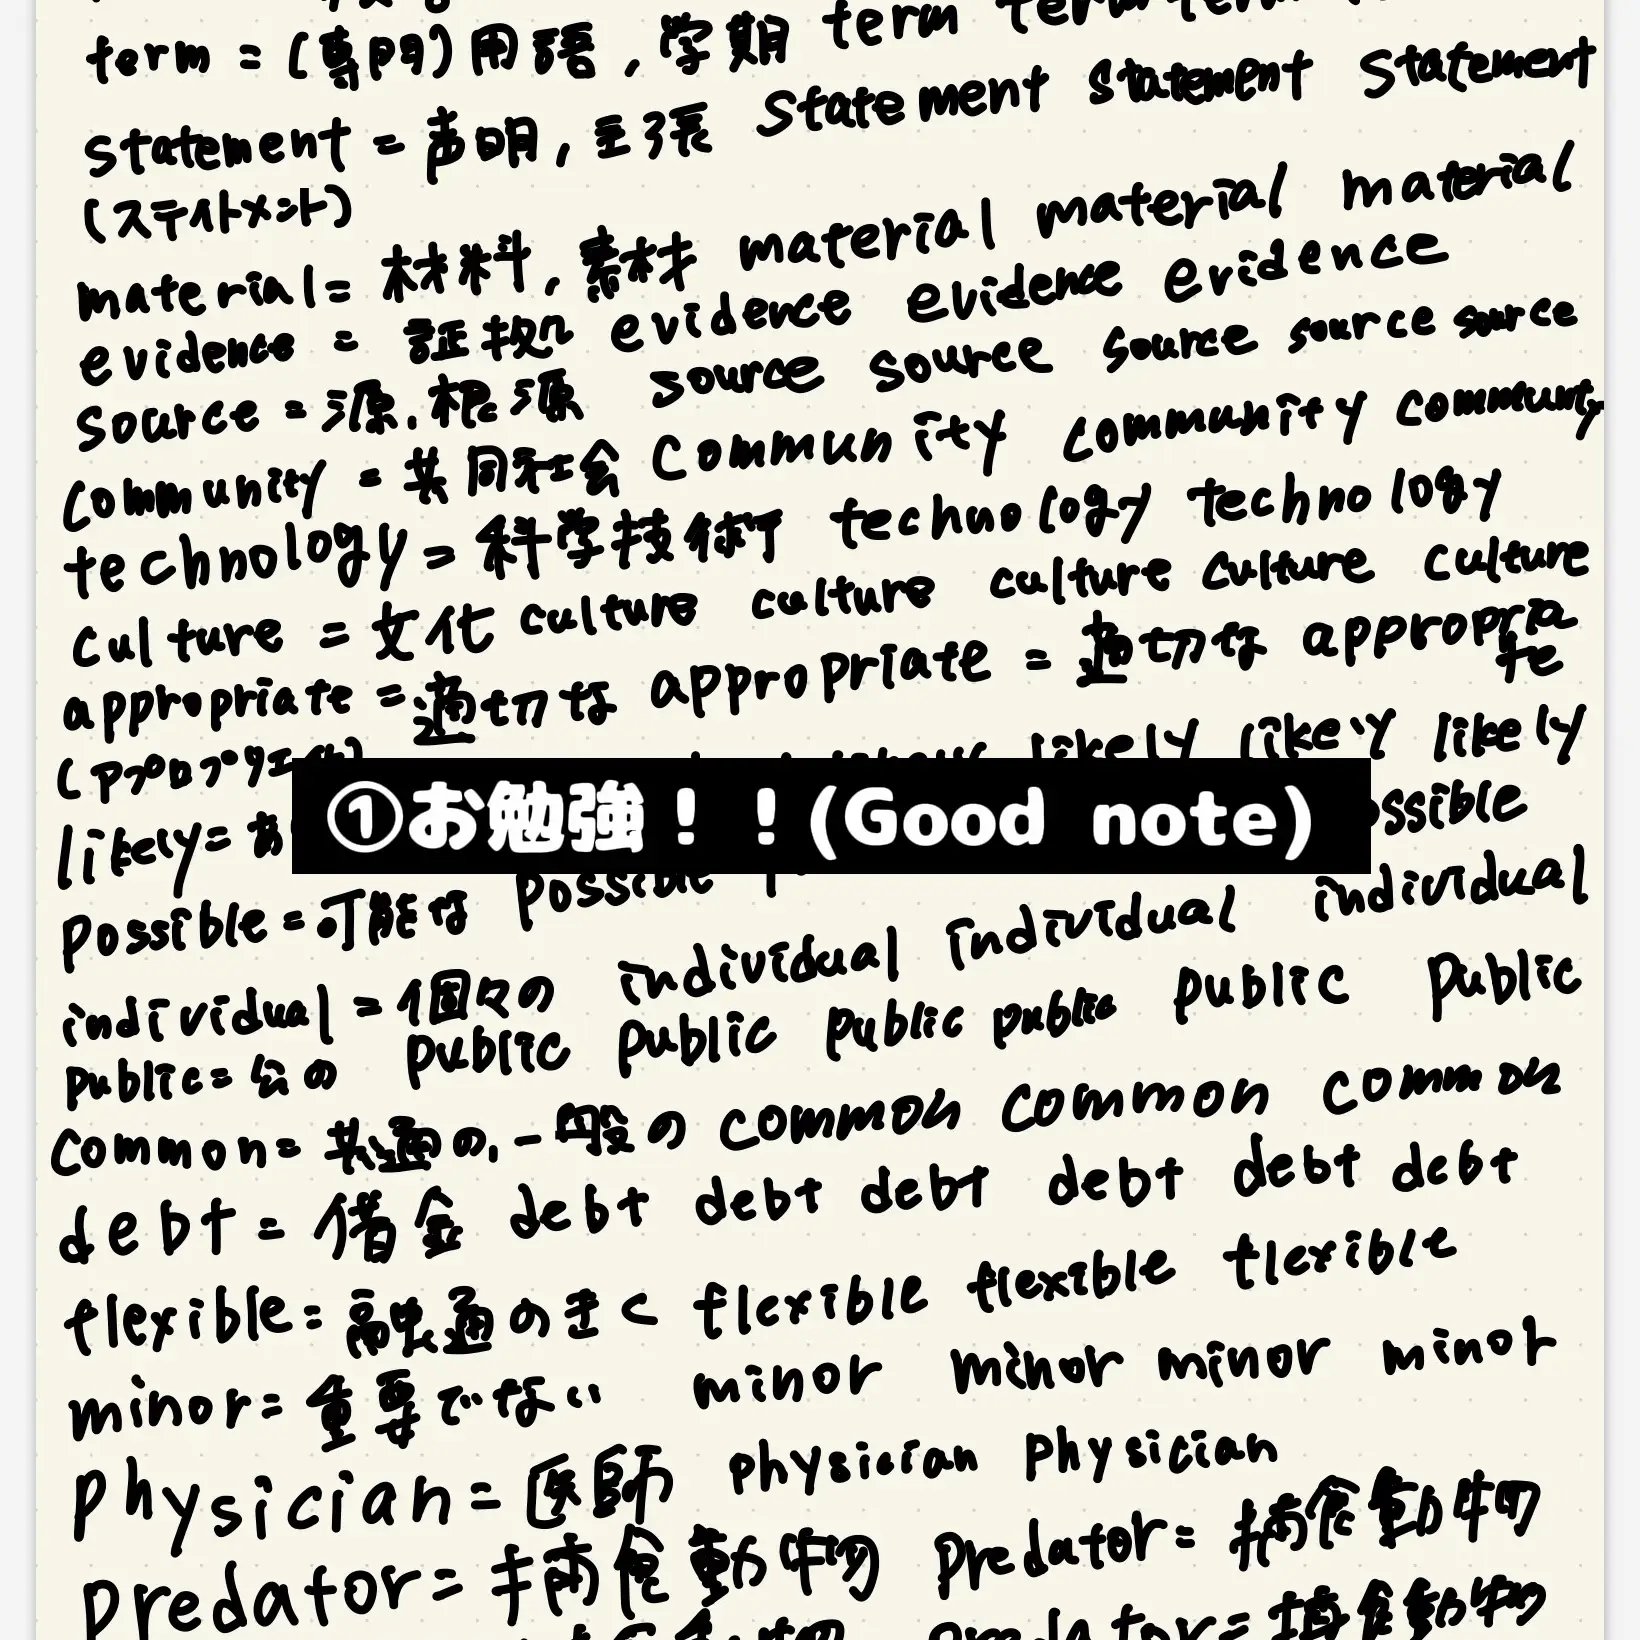 term = (専門)用語,学期 term term term
statement = 声明,主張 statement statement statement
(ステイトメント)
material = 材料,素材 material material material
evidence = 証拠 evidence evidence evidence
source = 源,根源 source source source source source
community = 共同社会 community community community
technology = 科学技術 technology technology
culture = 文化 culture culture culture culture culture
appropriate = 適切な appropriate = 適切な appropriate
likely likely likely
likely = あ
①お勉強!!(Good note)
possible = 可能な possible
individual = 個々の individual individual individual
public = 公の public public public public public public
common = 共通の,一般の common common common
debt = 借金 debt debt debt debt debt debt
flexible = 融通のきく flexible flexible flexible
minor = 重要でない minor minor minor minor
physician = 医師 physician physician
predator = 捕食動物 predator = 捕食動物
predator = 捕食動物